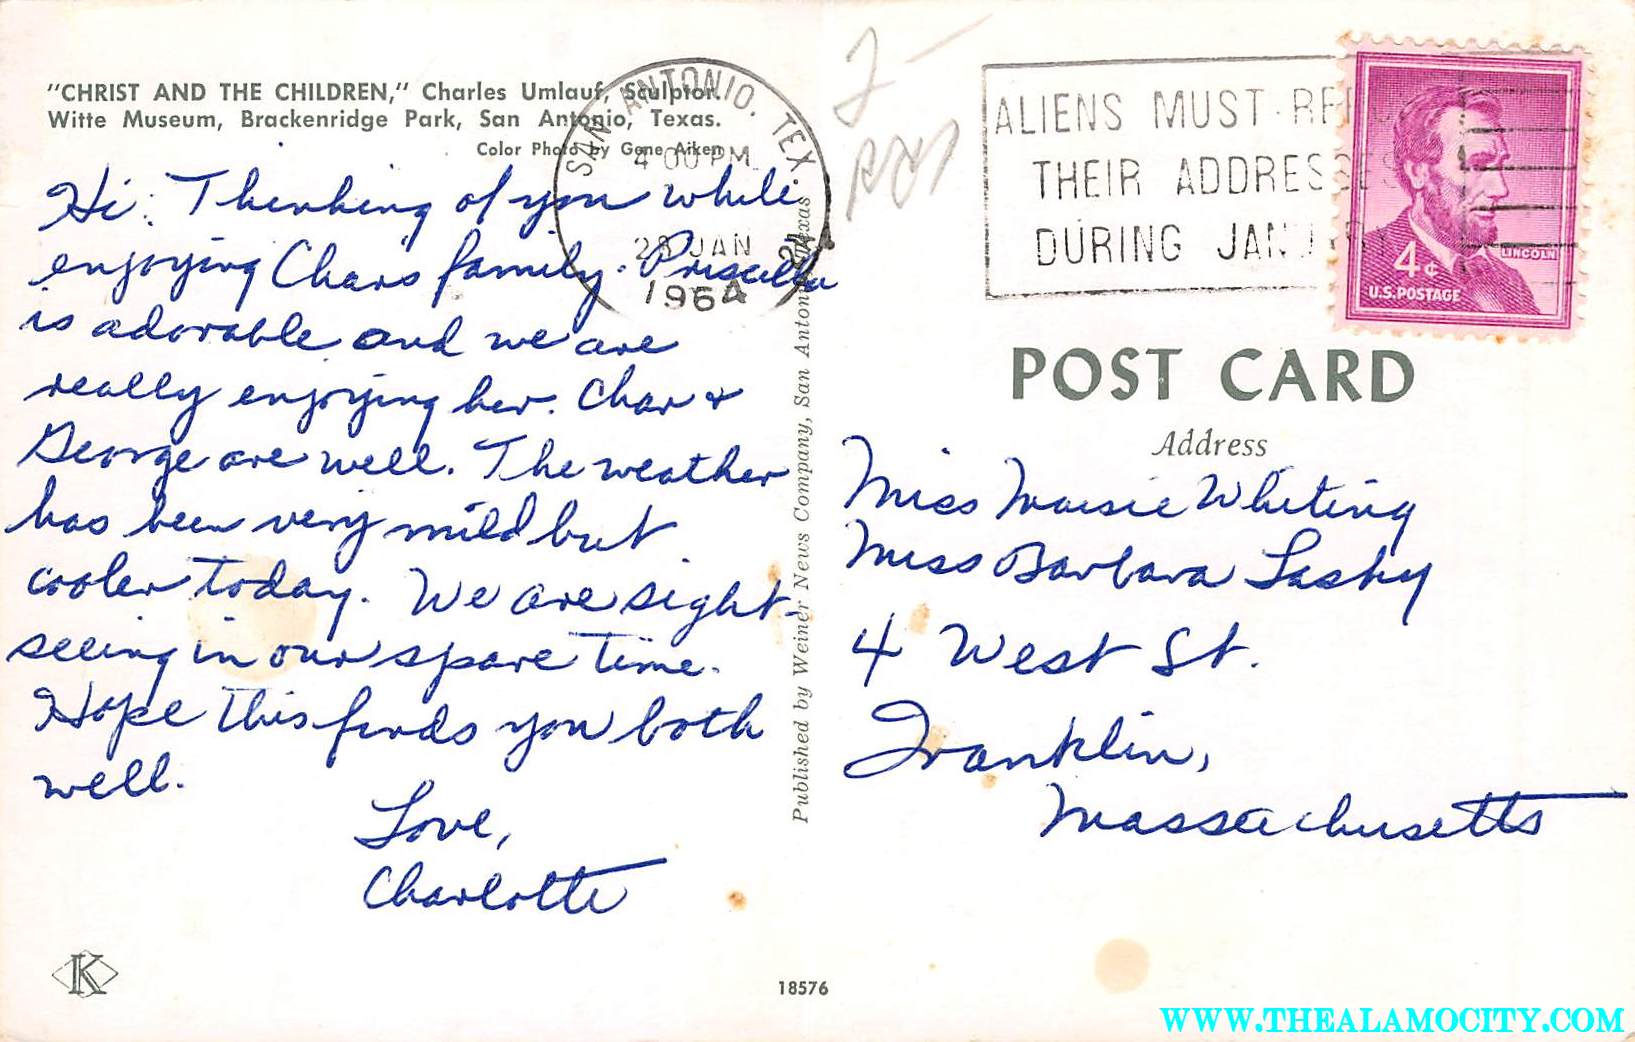 "CHRIST AND THE CHILDREN," Charles Umlauf, Sculptor.
Witte Museum, Brackenridge Park, San Antonio, Texas.
Color Photo by Gene Aiken
Hi. Thinking of you while
enjoying Chars family. Priscilla
is adorable and we are
really enjoying her. Char &
George are well. The weather
has been very mild but
cooler today. We are sight-
seeing in our spare time.
Hope this finds you both
well.
Love,
Charlotte
K
18576
Published by Weiner News Company, San Antonio, Texas
SAN ANTONIO, TEX.
4 00 PM
28 JAN
1964
ALIENS MUST REPO
THEIR ADDRESSES
DURING JANUARY
LINCOLN
4¢
U.S. POSTAGE
POST CARD
Address
Miss Maisie Whiting
Miss Barbara Lasky
4 West St.
Franklin,
Massachusetts
WWW.THEALAMOCITY.COM